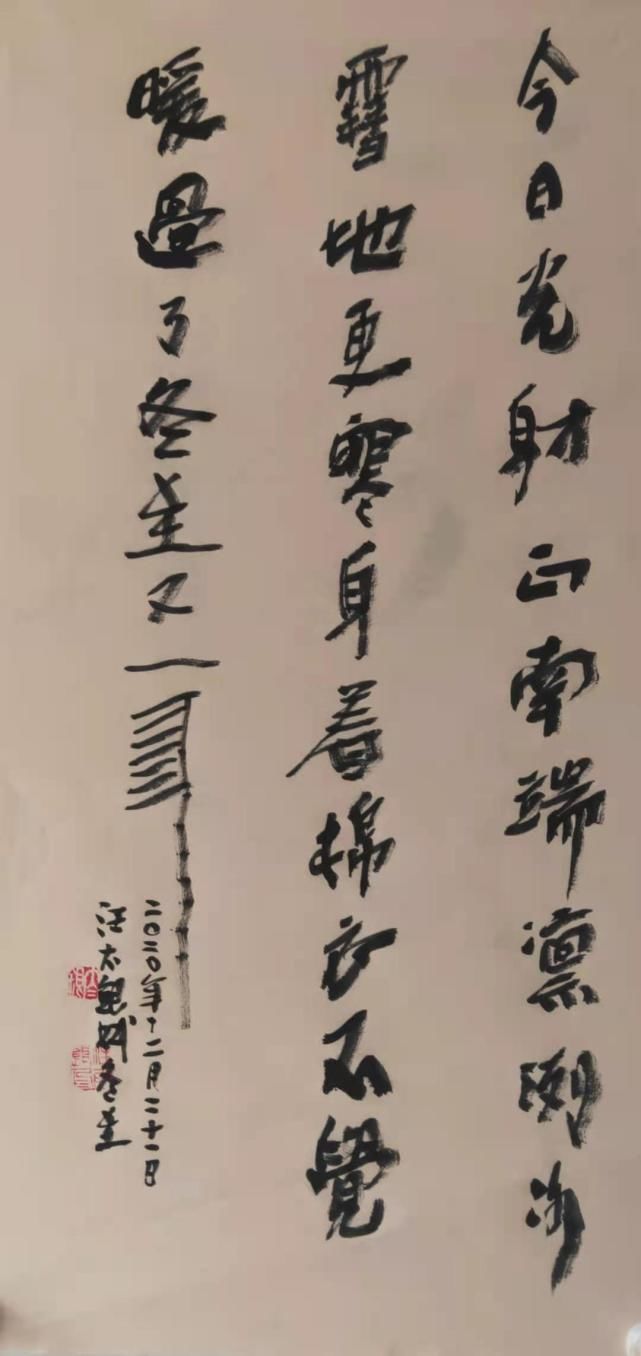 今日光射正南端凛冽冰
雪地更寒身着棉衣不覺
暖過了冬至又一年
二〇二〇年十二月二十一日
汪太冬至